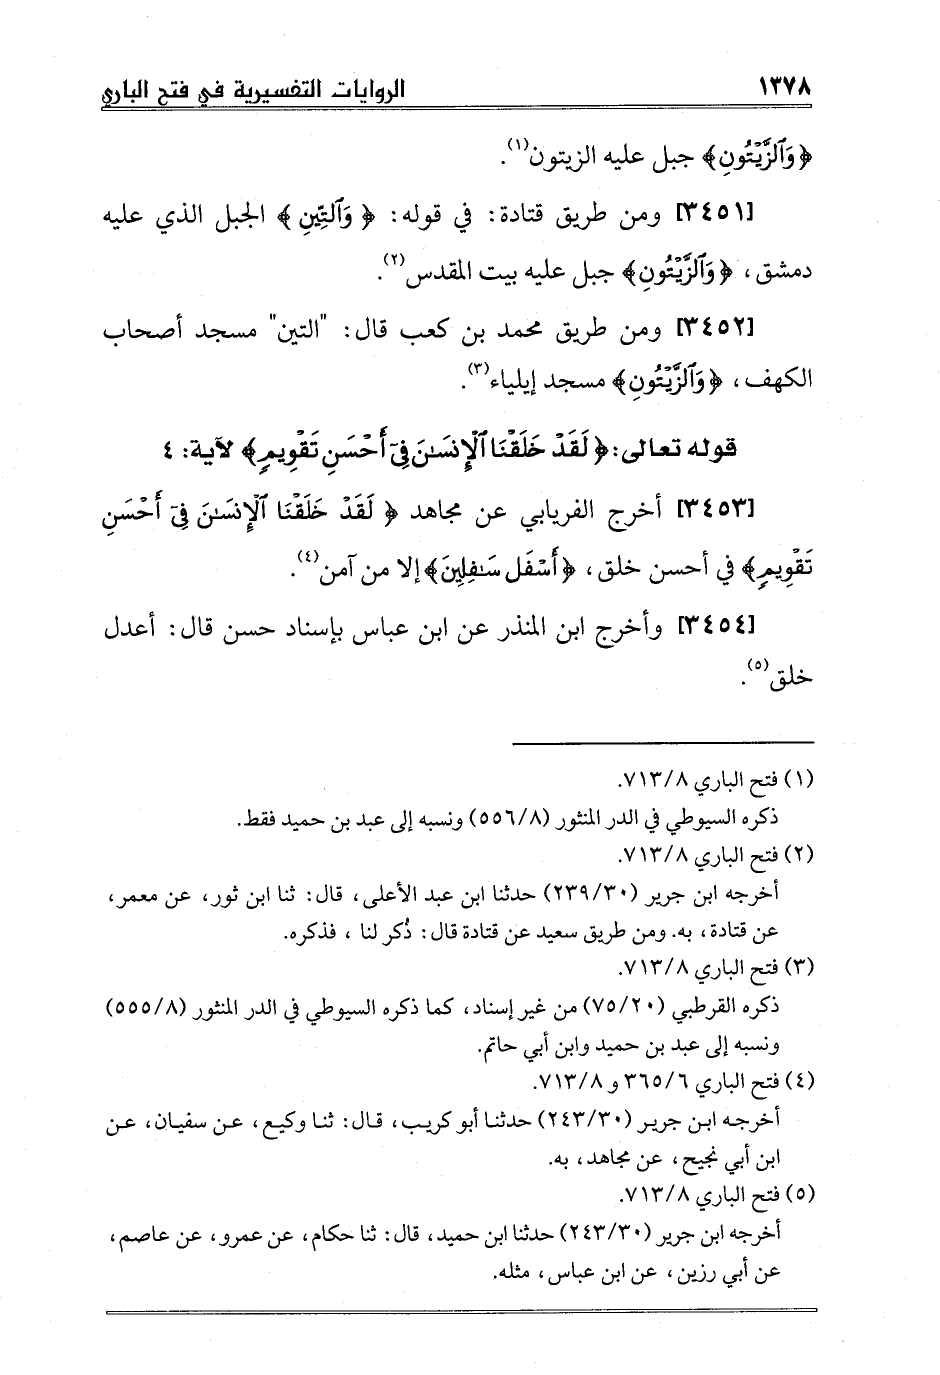 ١٣٧٨ الروايات التفسيرية في فتح الباري
﴿ وَٱلزَّيْتُونِ﴾ جبل عليه الزيتون(١).
[٣٤٥١] ومن طريق قتادة: في قوله: ﴿ وَٱلتِّينِ ﴾ الجبل الذي عليه
دمشق، ﴿ وَٱلزَّيْتُونِ﴾ جبل عليه بيت المقدس(٢).
[٣٤٥٢] ومن طريق محمد بن كعب قال: "التين" مسجد أصحاب
الكهف، ﴿ وَٱلزَّيْتُونِ﴾ مسجد إيلياء(٣).
قوله تعالى:﴿ لَقَدْ خَلَقْنَا ٱلْإِنسَـٰنَ فِىٓ أَحْسَنِ تَقْوِيمٍ﴾ لآية: ٤
[٣٤٥٣] أخرج الفريابي عن مجاهد ﴿ لَقَدْ خَلَقْنَا ٱلْإِنسَـٰنَ فِىٓ أَحْسَنِ
تَقْوِيمٍ﴾ في أحسن خلق، ﴿أَسْفَلَ سَـٰفِلِينَ﴾ إلا من آمن(٤).
[٣٤٥٤] وأخرج ابن المنذر عن ابن عباس بإسناد حسن قال: أعدل
خلق(٥).
(١) فتح الباري ٧١٣/٨.
ذكره السيوطي في الدر المنثور (٥٥٦/٨) ونسبه إلى عبد بن حميد فقط.
(٢) فتح الباري ٧١٣/٨.
أخرجه ابن جرير (٢٣٩/٣٠) حدثنا ابن عبد الأعلى، قال: ثنا ابن ثور، عن معمر،
عن قتادة، به. ومن طريق سعيد عن قتادة قال: ذُكر لنا ، فذكره.
(٣) فتح الباري ٧١٣/٨.
ذكره القرطبي (٧٥/٢٠) من غير إسناد، كما ذكره السيوطي في الدر المنثور (٥٥٥/٨)
ونسبه إلى عبد بن حميد وابن أبي حاتم.
(٤) فتح الباري ٣٦٥/٦ و ٧١٣/٨.
أخرجه ابن جرير (٢٤٣/٣٠) حدثنا أبو كريب، قال: ثنا وكيع، عن سفيان، عن
ابن أبي نجيح، عن مجاهد، به.
(٥) فتح الباري ٧١٣/٨.
أخرجه ابن جرير (٢٤٣/٣٠) حدثنا ابن حميد، قال: ثنا حكام، عن عمرو، عن عاصم،
عن أبي رزين، عن ابن عباس، مثله.